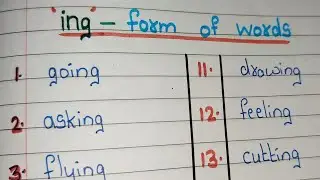 'ing' - form of words
1. going
2. asking
3. flying
11. drawing
12. feeling
13. cutting